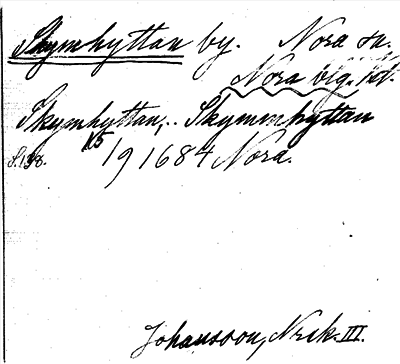 Skymhyttan by. Nora sn.
Nora blg. hd.
Skymhyttan, .. Skymmhyttan
S. 138. K5 1/9 1684 Nora.
Johansson, Nrik. III.